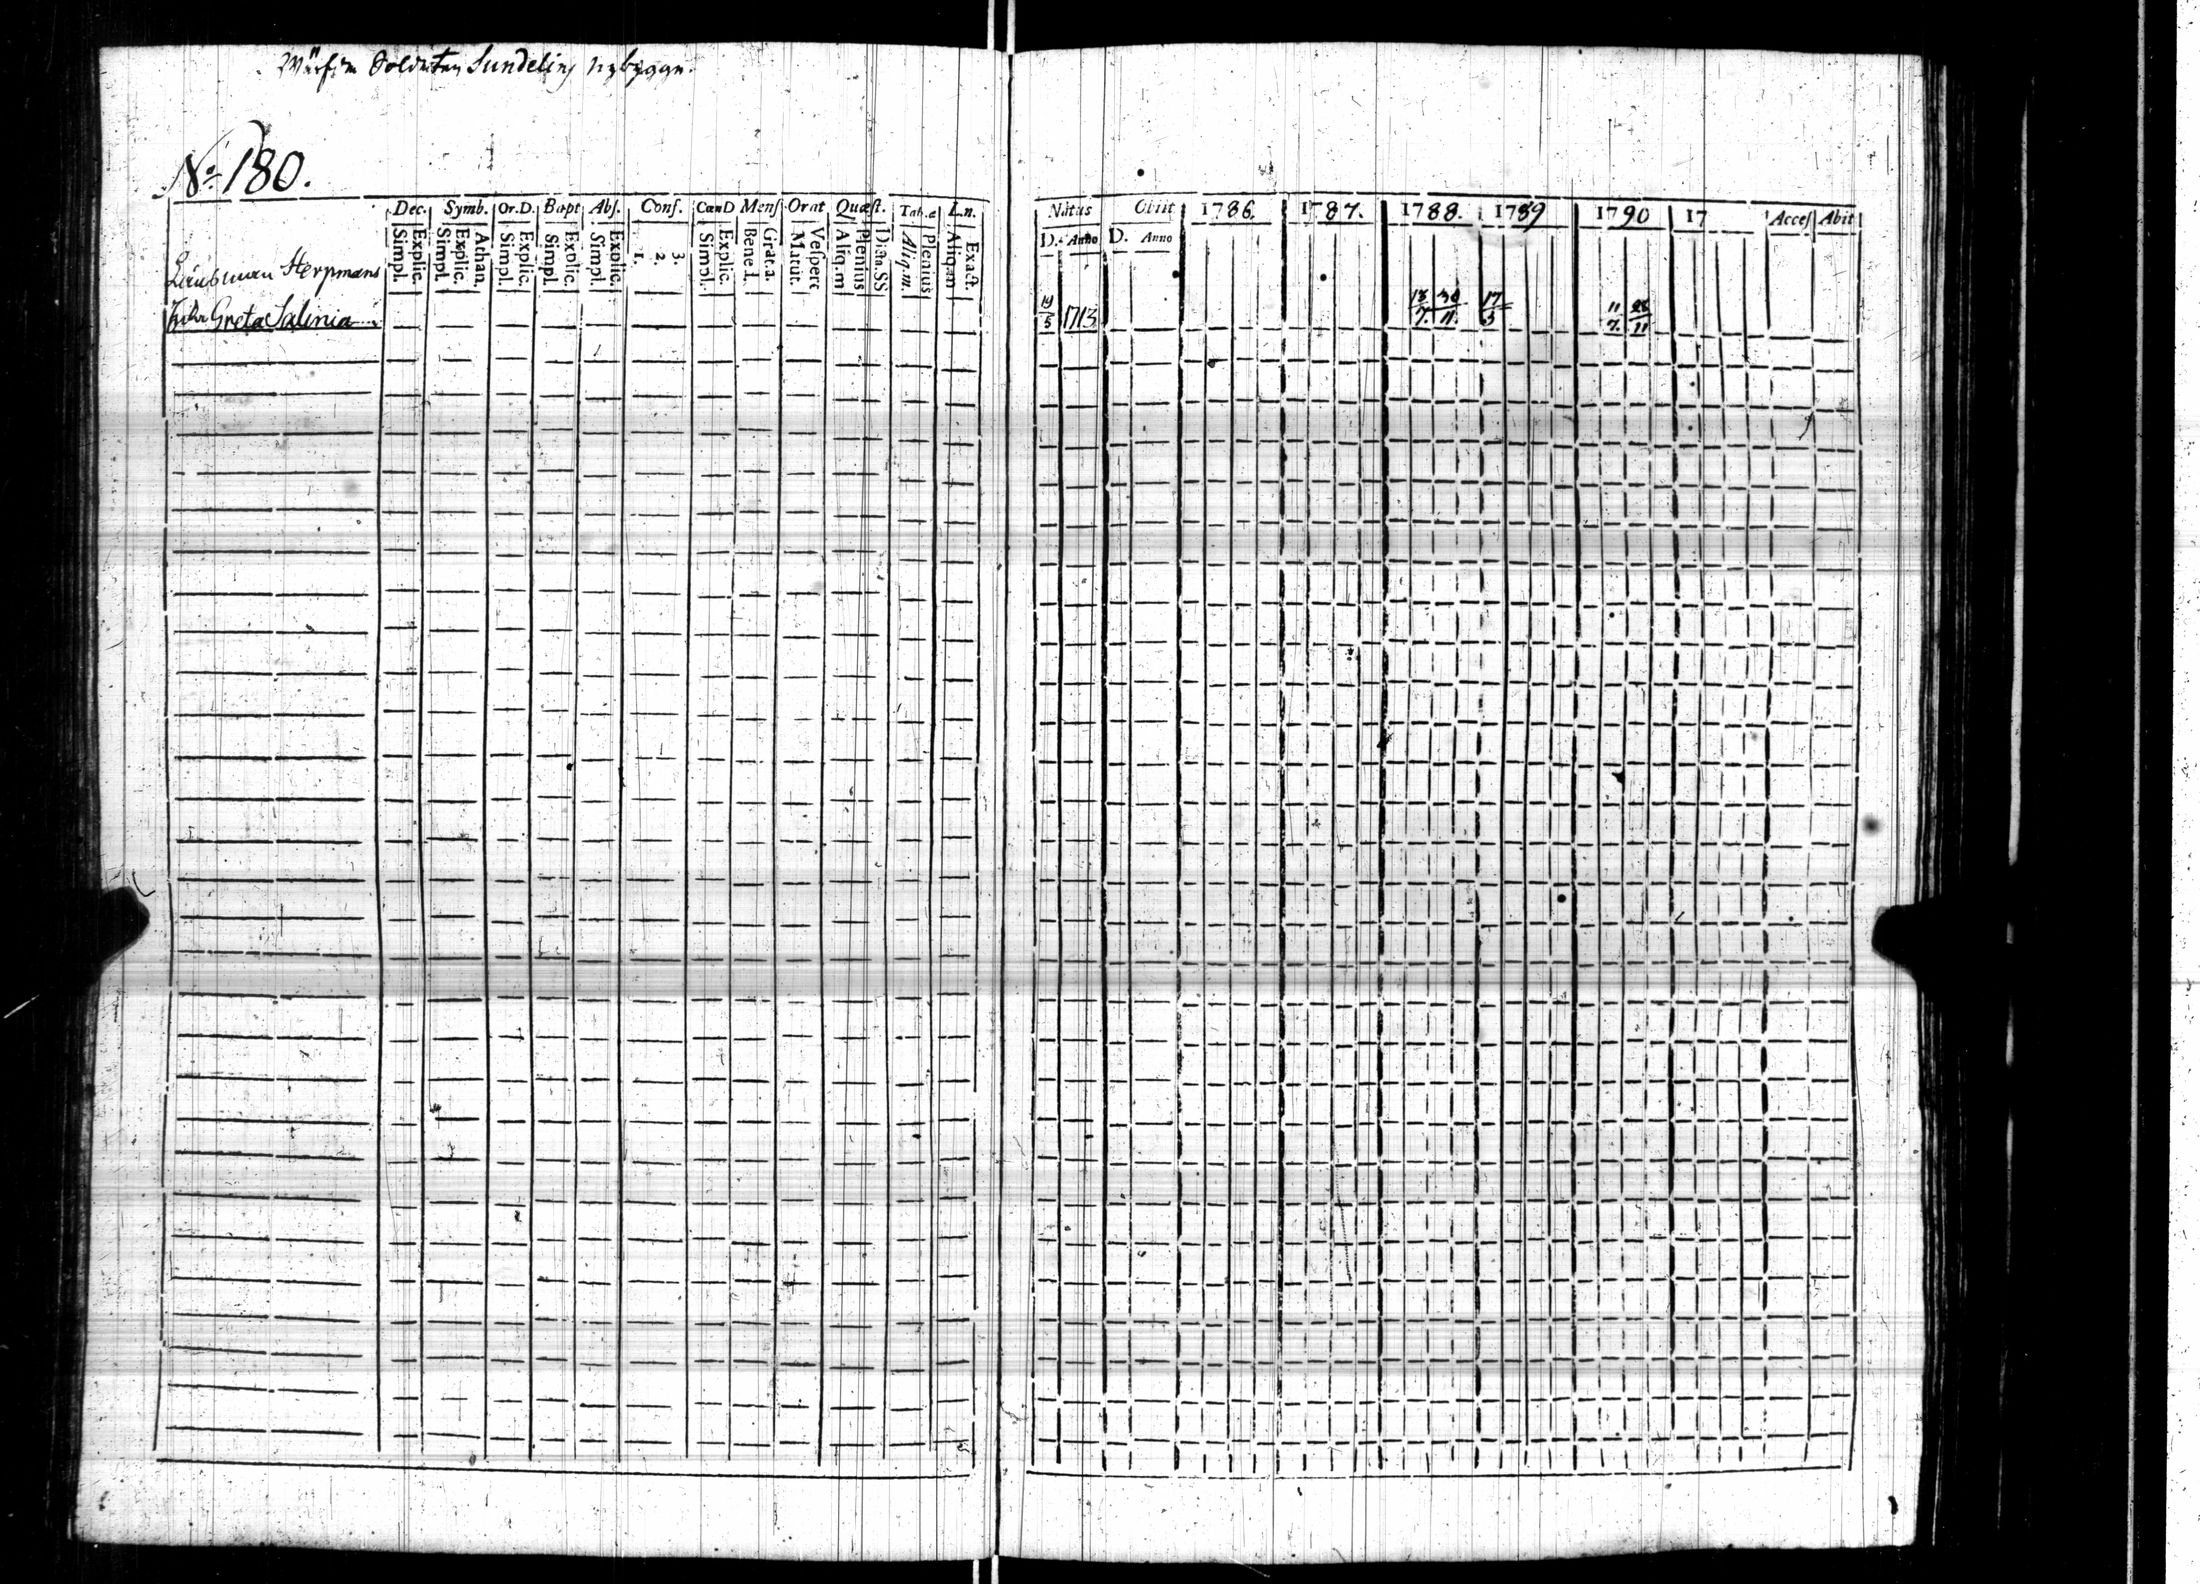 Soldaten Sundelins nybygge.
No 180.
Dec. Symb. Or.D. Bapt Abs. Conf. CœnD Mens Orat Quæst. Tab.æ L.n.
Simpl. Explic. Simpl. Explic. Athan. Simpl. Explic. Simpl. Explic. Simpl. Explic. 1. 2. 3. Simpl. Explic. Bene l. Grat.a. Matut. Vespere Aliq.m Plenius Dicta SS Aliq.m. Plenius Aliq.m Exact.
Länsman Herpmans
Enka Greta Salinia
Natus Obiit 1786. 1787. 1788. 1789 1790 17 Acces Abit
D. Anno D. Anno
19/5 1713 13/7. 30/11. 17/5 11/7. 28/11